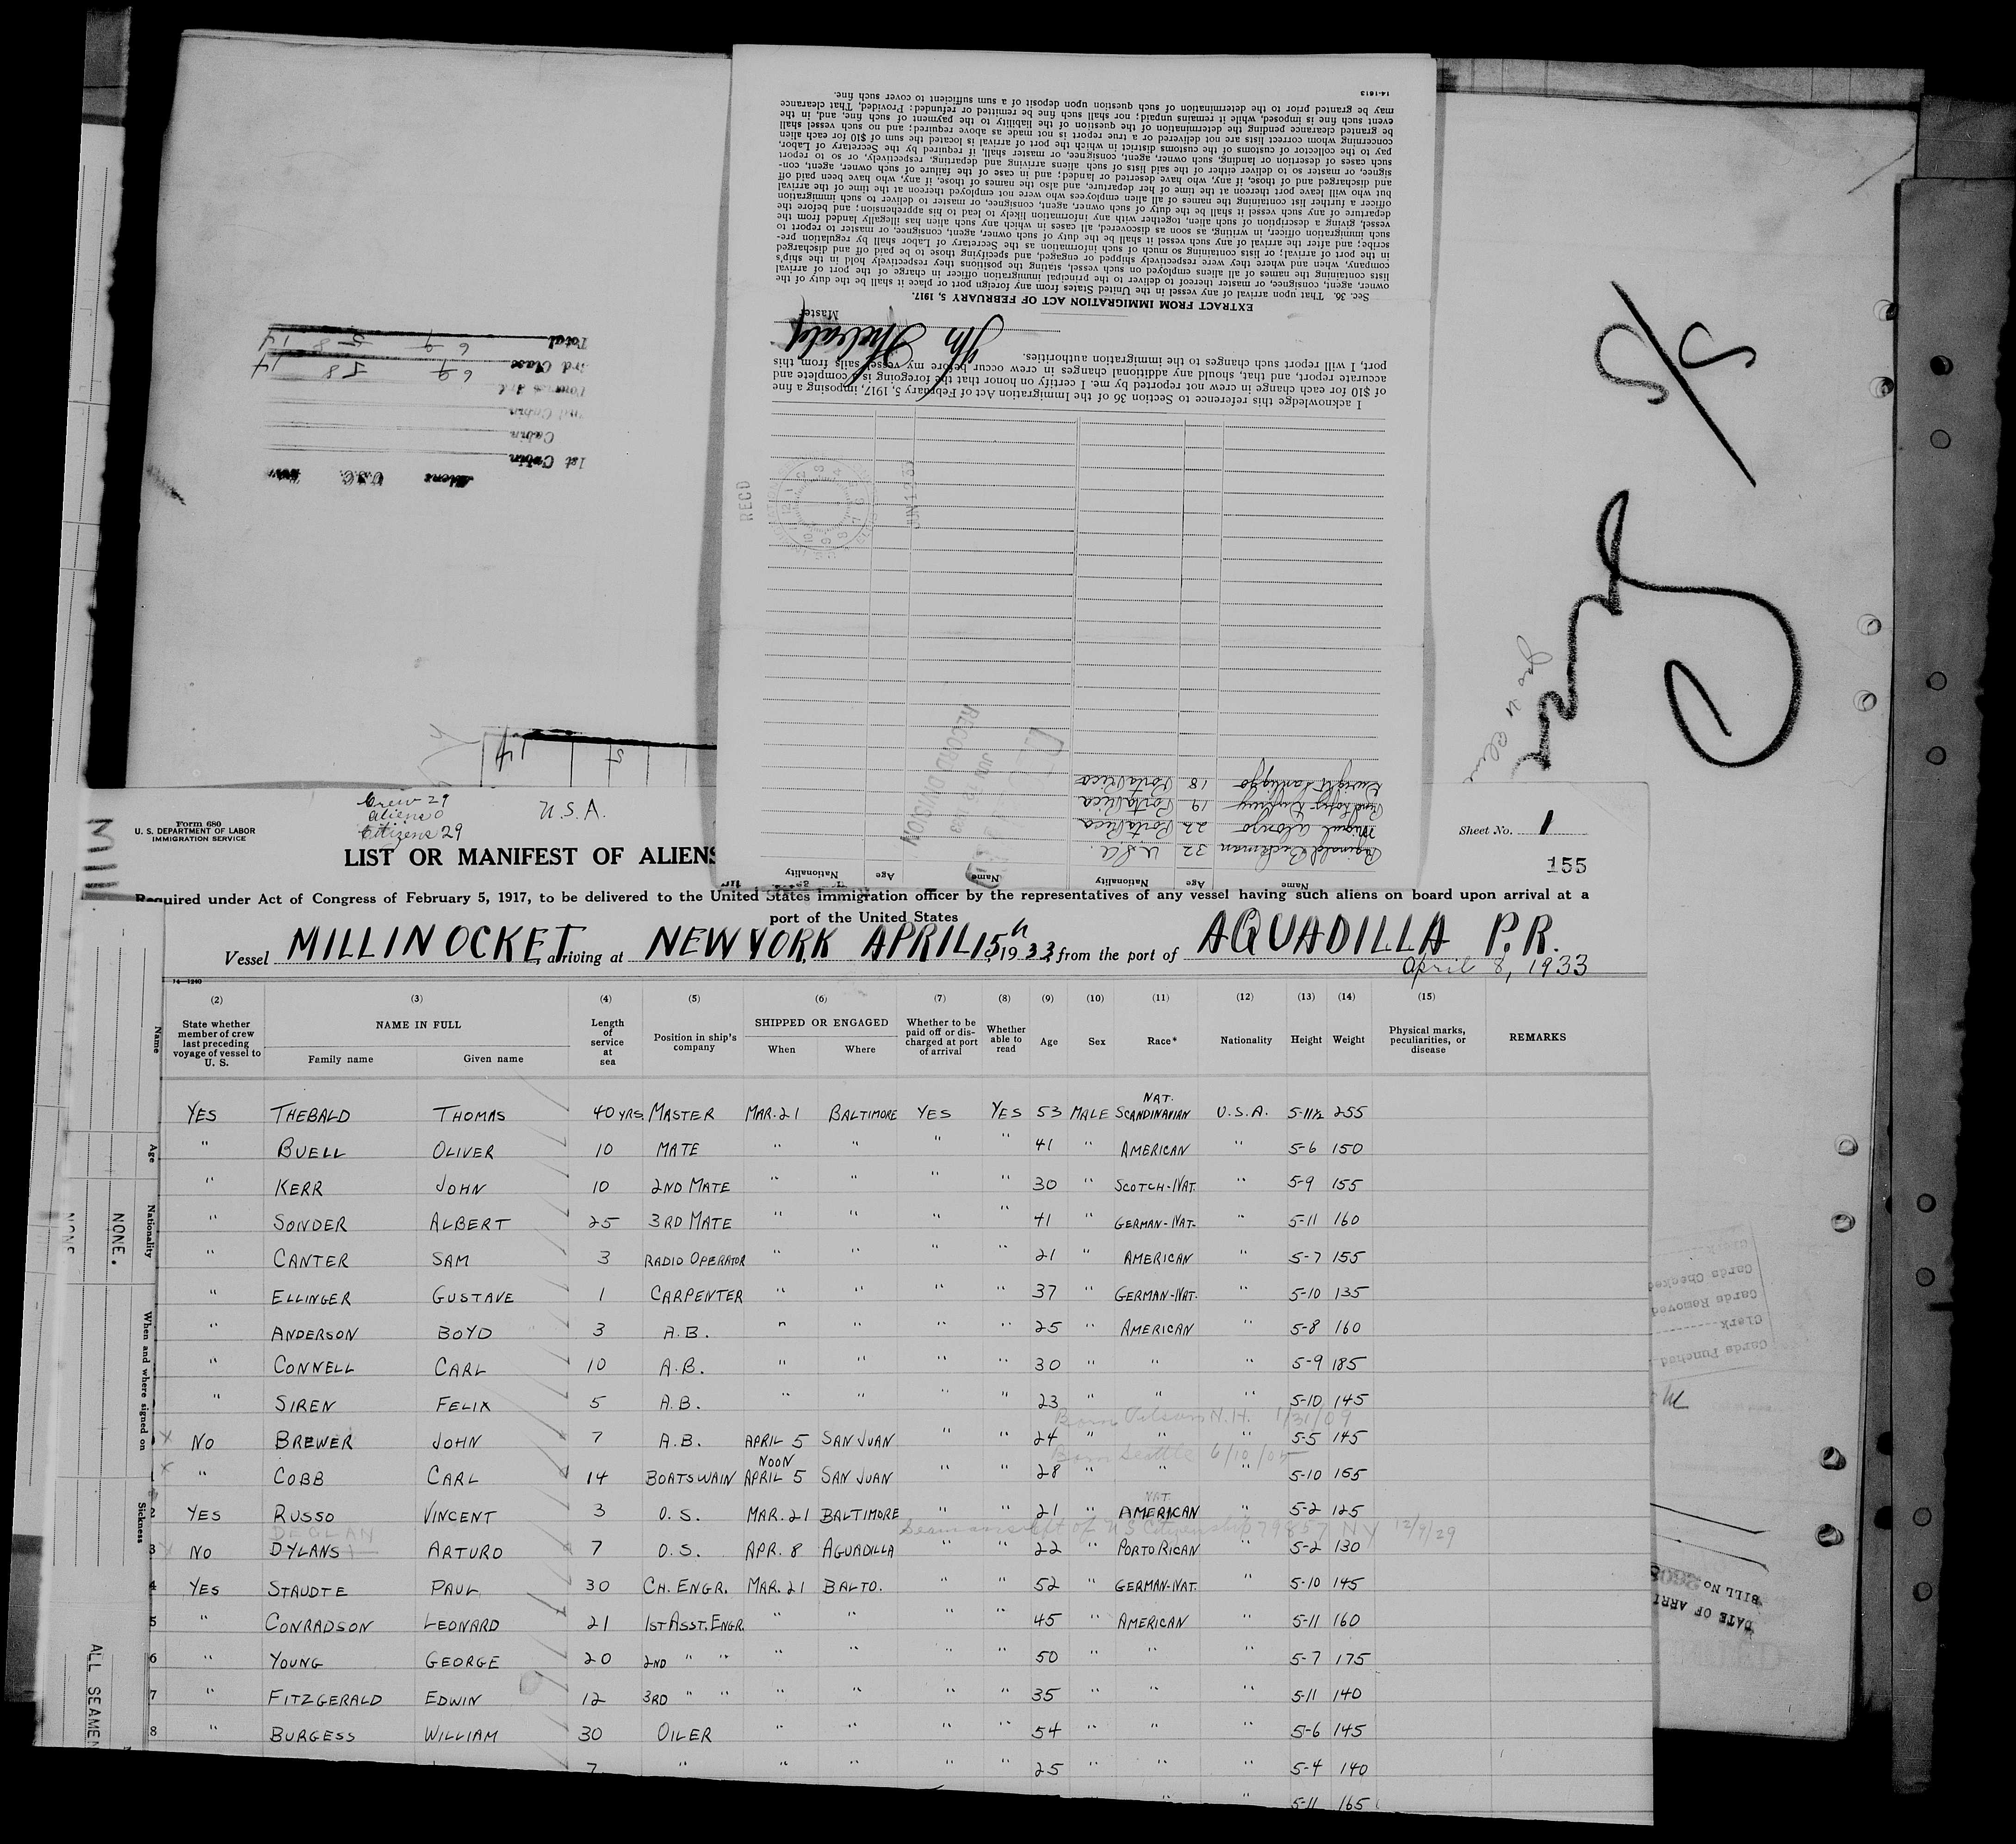 Crew 29
aliens 0
Citizens 29
U.S.A.
Form 680
U. S. DEPARTMENT OF LABOR
IMMIGRATION SERVICE
LIST OR MANIFEST OF ALIENS
Sheet No. 1
155
Required under Act of Congress of February 5, 1917, to be delivered to the United States immigration officer by the representatives of any vessel having such aliens on board upon arrival at a
port of the United States
Vessel MILLINOCKET, arriving at NEW YORK APRIL 15th, 1933, from the port of AQUADILLA P.R.
April 8, 1933
14—1240
(2) (3) (4) (5) (6) (7) (8) (9) (10) (11) (12) (13) (14) (15)
State whether member of crew last preceding voyage of vessel to U. S. NAME IN FULL Family name Given name Length of service at sea Position in ship's company SHIPPED OR ENGAGED When Where Whether to be paid off or discharged at port of arrival Whether able to read Age Sex Race* Nationality Height Weight Physical marks, peculiarities, or disease REMARKS
YES THEBALD THOMAS 40 YRS. MASTER MAR. 21 BALTIMORE YES YES 53 MALE NAT. SCANDINAVIAN U.S.A. 5-11½ 255
" BUELL OLIVER 10 MATE " " " " 41 " AMERICAN " 5-6 150
" KERR JOHN 10 2ND MATE " " " " 30 " SCOTCH-NAT. " 5-9 155
" SONDER ALBERT 25 3RD MATE " " " " 41 " GERMAN-NAT. " 5-11 160
" CANTER SAM 3 RADIO OPERATOR " " " " 21 " AMERICAN " 5-7 155
" ELLINGER GUSTAVE 1 CARPENTER " " " " 37 " GERMAN-NAT. " 5-10 135
" ANDERSON BOYD 3 A.B. " " " " 25 " AMERICAN " 5-8 160
" CONNELL CARL 10 A.B. " " " " 30 " " " 5-9 185
" SIREN FELIX 5 A.B. " " " " 23 " " " 5-10 145
Born N.H. 1/31/09
NO BREWER JOHN 7 A.B. APRIL 5 SAN JUAN " " 24 " " " 5-5 145
Born Seattle 6/10/05
" COBB CARL 14 BOATSWAIN NOON APRIL 5 SAN JUAN " " 28 " " " 5-10 165
2 YES RUSSO VINCENT 3 O.S. MAR. 21 BALTIMORE " " 21 " NAT. AMERICAN " 5-2 125
DECLAN Seamans cft of US Citizenship 79857 NY 12/9/29
3 NO DYLANS ARTURO 7 O.S. APR. 8 AGUADILLA " " 22 " PORTO RICAN " 5-2 130
4 YES STAUDTE PAUL 30 CH. ENGR. MAR. 21 BALTO. " " 52 " GERMAN-NAT. " 5-10 145
5 " CONRADSON LEONARD 21 1ST ASST. ENGR. " " " " 45 " AMERICAN " 5-11 160
6 " YOUNG GEORGE 20 2ND " " " " " " 50 " " " 5-7 175
7 " FITZGERALD EDWIN 12 3RD " " " " " " 35 " " " 5-11 140
8 " BURGESS WILLIAM 30 OILER " " " " 54 " " " 5-6 145
7 " " " " " 25 " " " 5-4 140
" " 5-11 165
Name
Age
Nationality
When and where signed on
Sickness
NONE.
NONE
ALL SEAMEN
MILL
Name Age Nationality Name Age Nationality
Reginald Buckman 32 U.S.A.
Miguel Alonzo 22 Porto Rico
19 Porto Rico
Dwight 18 Porto Rico
RECORD DIVISION
RECD
I acknowledge this reference to Section 36 of the Immigration Act of February 5, 1917, imposing a fine
of $10 for each change in crew not reported by me. I certify on honor that the foregoing is a complete and
accurate report, and that, should any additional changes in crew occur before my vessel sails from this
port, I will report such changes to the immigration authorities.
Th Thebald
Master
EXTRACT FROM IMMIGRATION ACT OF FEBRUARY 5, 1917.
Sec. 36. That upon arrival of any vessel in the United States from any foreign port or place it shall be the duty of the
owner, agent, consignee, or master thereof to deliver to the principal immigration officer in charge of the port of arrival
lists containing the names of all aliens employed on such vessel, stating the positions they respectively hold in the ship's
company, when and where they were respectively shipped or engaged, and specifying those to be paid off and discharged
in the port of arrival; or lists containing so much of such information as the Secretary of Labor shall by regulation pre-
scribe; and after the arrival of any such vessel it shall be the duty of such owner, agent, consignee, or master to report to
such immigration officer, in writing, as soon as discovered, all cases in which any such alien has illegally landed from the
vessel, giving a description of such alien, together with any information likely to lead to his apprehension; and before the
departure of any such vessel it shall be the duty of such owner, agent, consignee, or master to deliver to such immigration
officer a further list containing the names of all alien employees who were not employed thereon at the time of the arrival
but who will leave port thereon at the time of her departure, and also the names of those, if any, who have been paid off
and discharged and of those, if any, who have deserted or landed; and in case of the failure of such owner, agent, con-
signee, or master so to deliver either of the said lists of such aliens arriving and departing, respectively, or so to report
such cases of desertion or landing, such owner, agent, consignee, or master shall, if required by the Secretary of Labor,
pay to the collector of customs of the customs district in which the port of arrival is located the sum of $10 for each alien
concerning whom correct lists are not delivered or a true report is not made as above required; and no such vessel shall
be granted clearance pending the determination of the question of the liability to the payment of such fine, and, in the
event such fine is imposed, while it remains unpaid; nor shall such fine be remitted or refunded: Provided, That clearance
may be granted prior to the determination of such question upon deposit of a sum sufficient to cover such fine.
14-1613
Aliens U.S.C.
1st Cabin
Cabin
3rd Class 69 58 14
Total 69 58 14
14
S/S
Cards Punched
Clerk
Cards Removed
Cards Checked
Clerk
BILL NO.
DATE OF ARRI